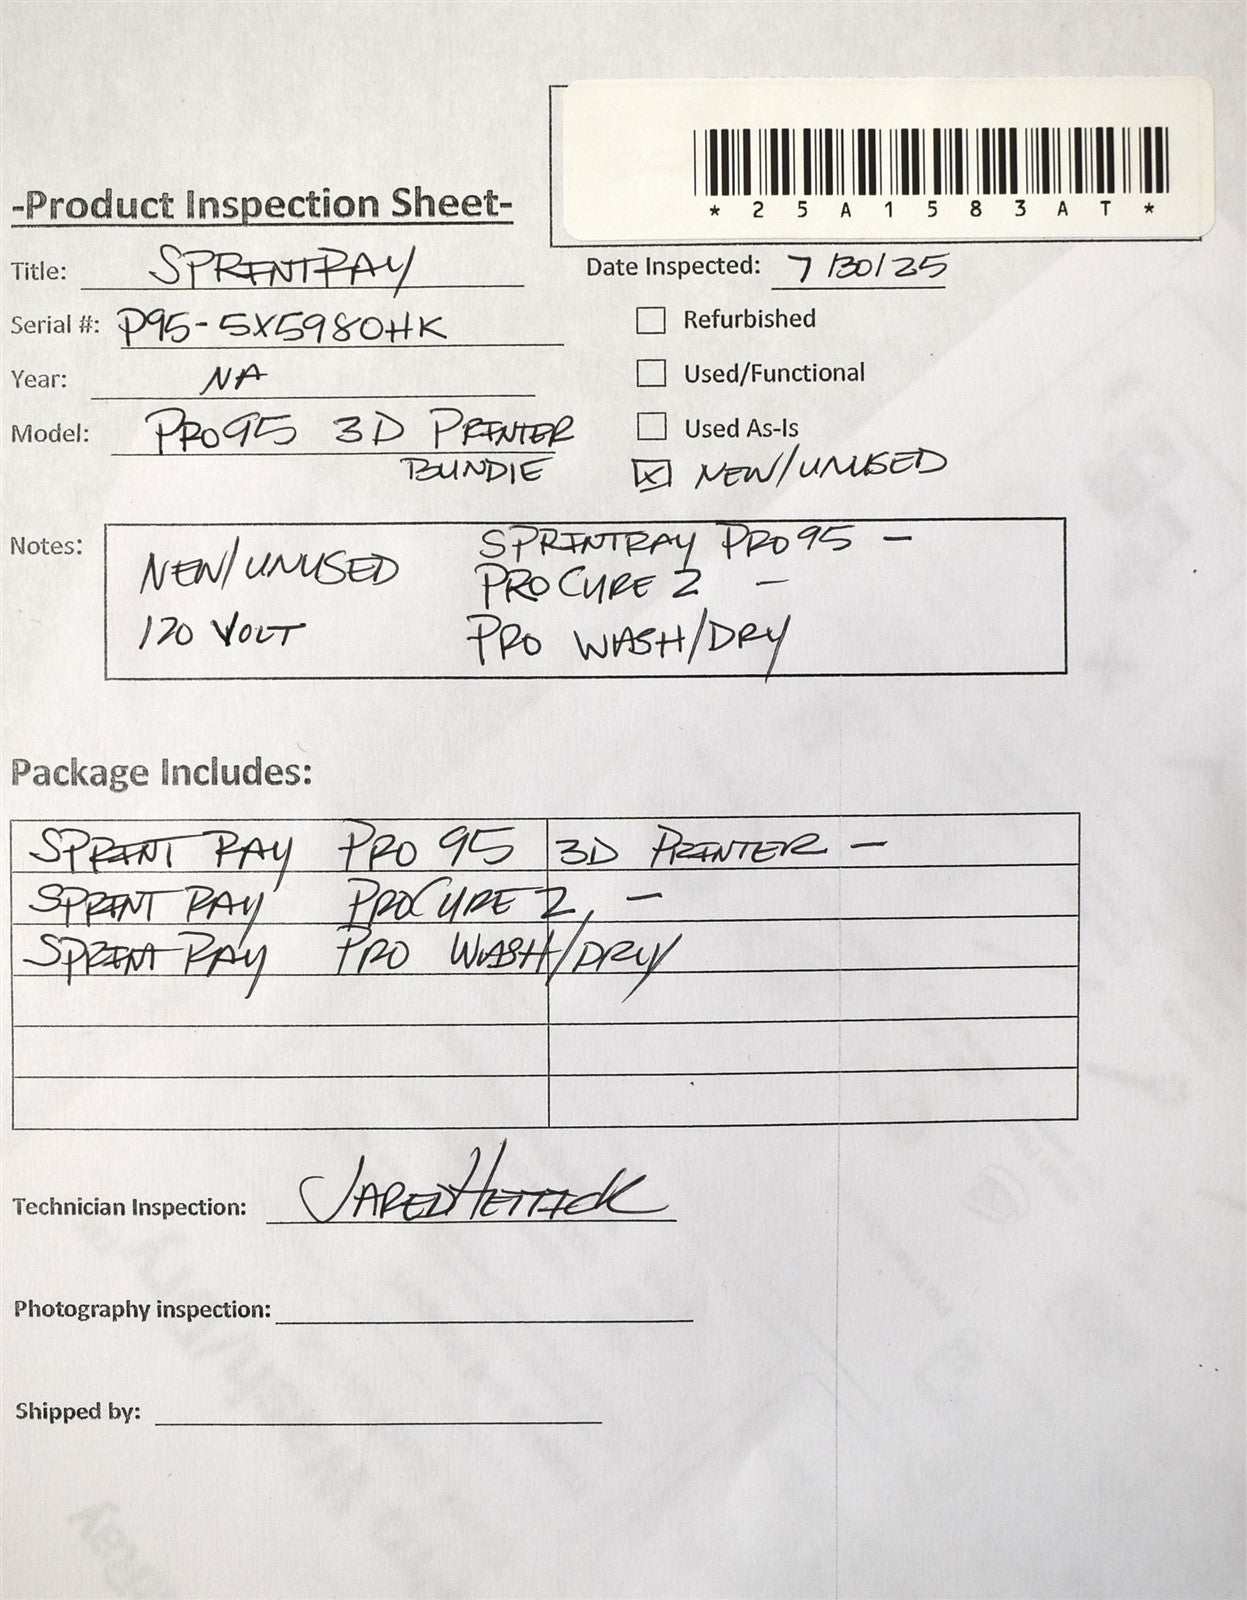 *25A1583AT*
-Product Inspection Sheet-
Title: SPRINTRAY
Date Inspected: 7/30/25
Serial #: P95-5X5980HK
Refurbished
Year: NA
Used/Functional
Model: PRO95 3D PRINTER
BUNDLE
Used As-Is
NEW/UNUSED
Notes:
NEW/UNUSED
120 VOLT
SPRINTRAY PRO95 -
PRO CURE 2 -
PRO WASH/DRY
Package Includes:
SPRINT RAY PRO 95 3D PRINTER -
SPRINT RAY PROCURE 2, -
SPRINT RAY PRO WASH/DRY
Technician Inspection: JARED HETTICK
Photography inspection:
Shipped by: